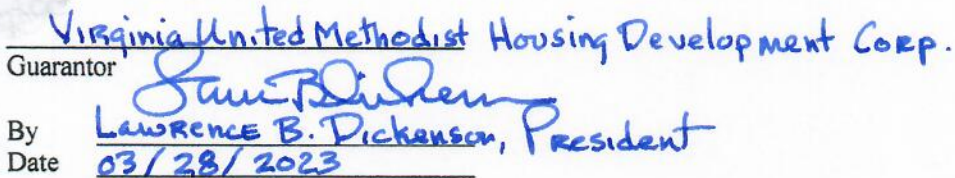 Virginia United Methodist Housing Development Corp.
Guarantor
By Lawrence B. Dickenson, President
Date 03/28/2023